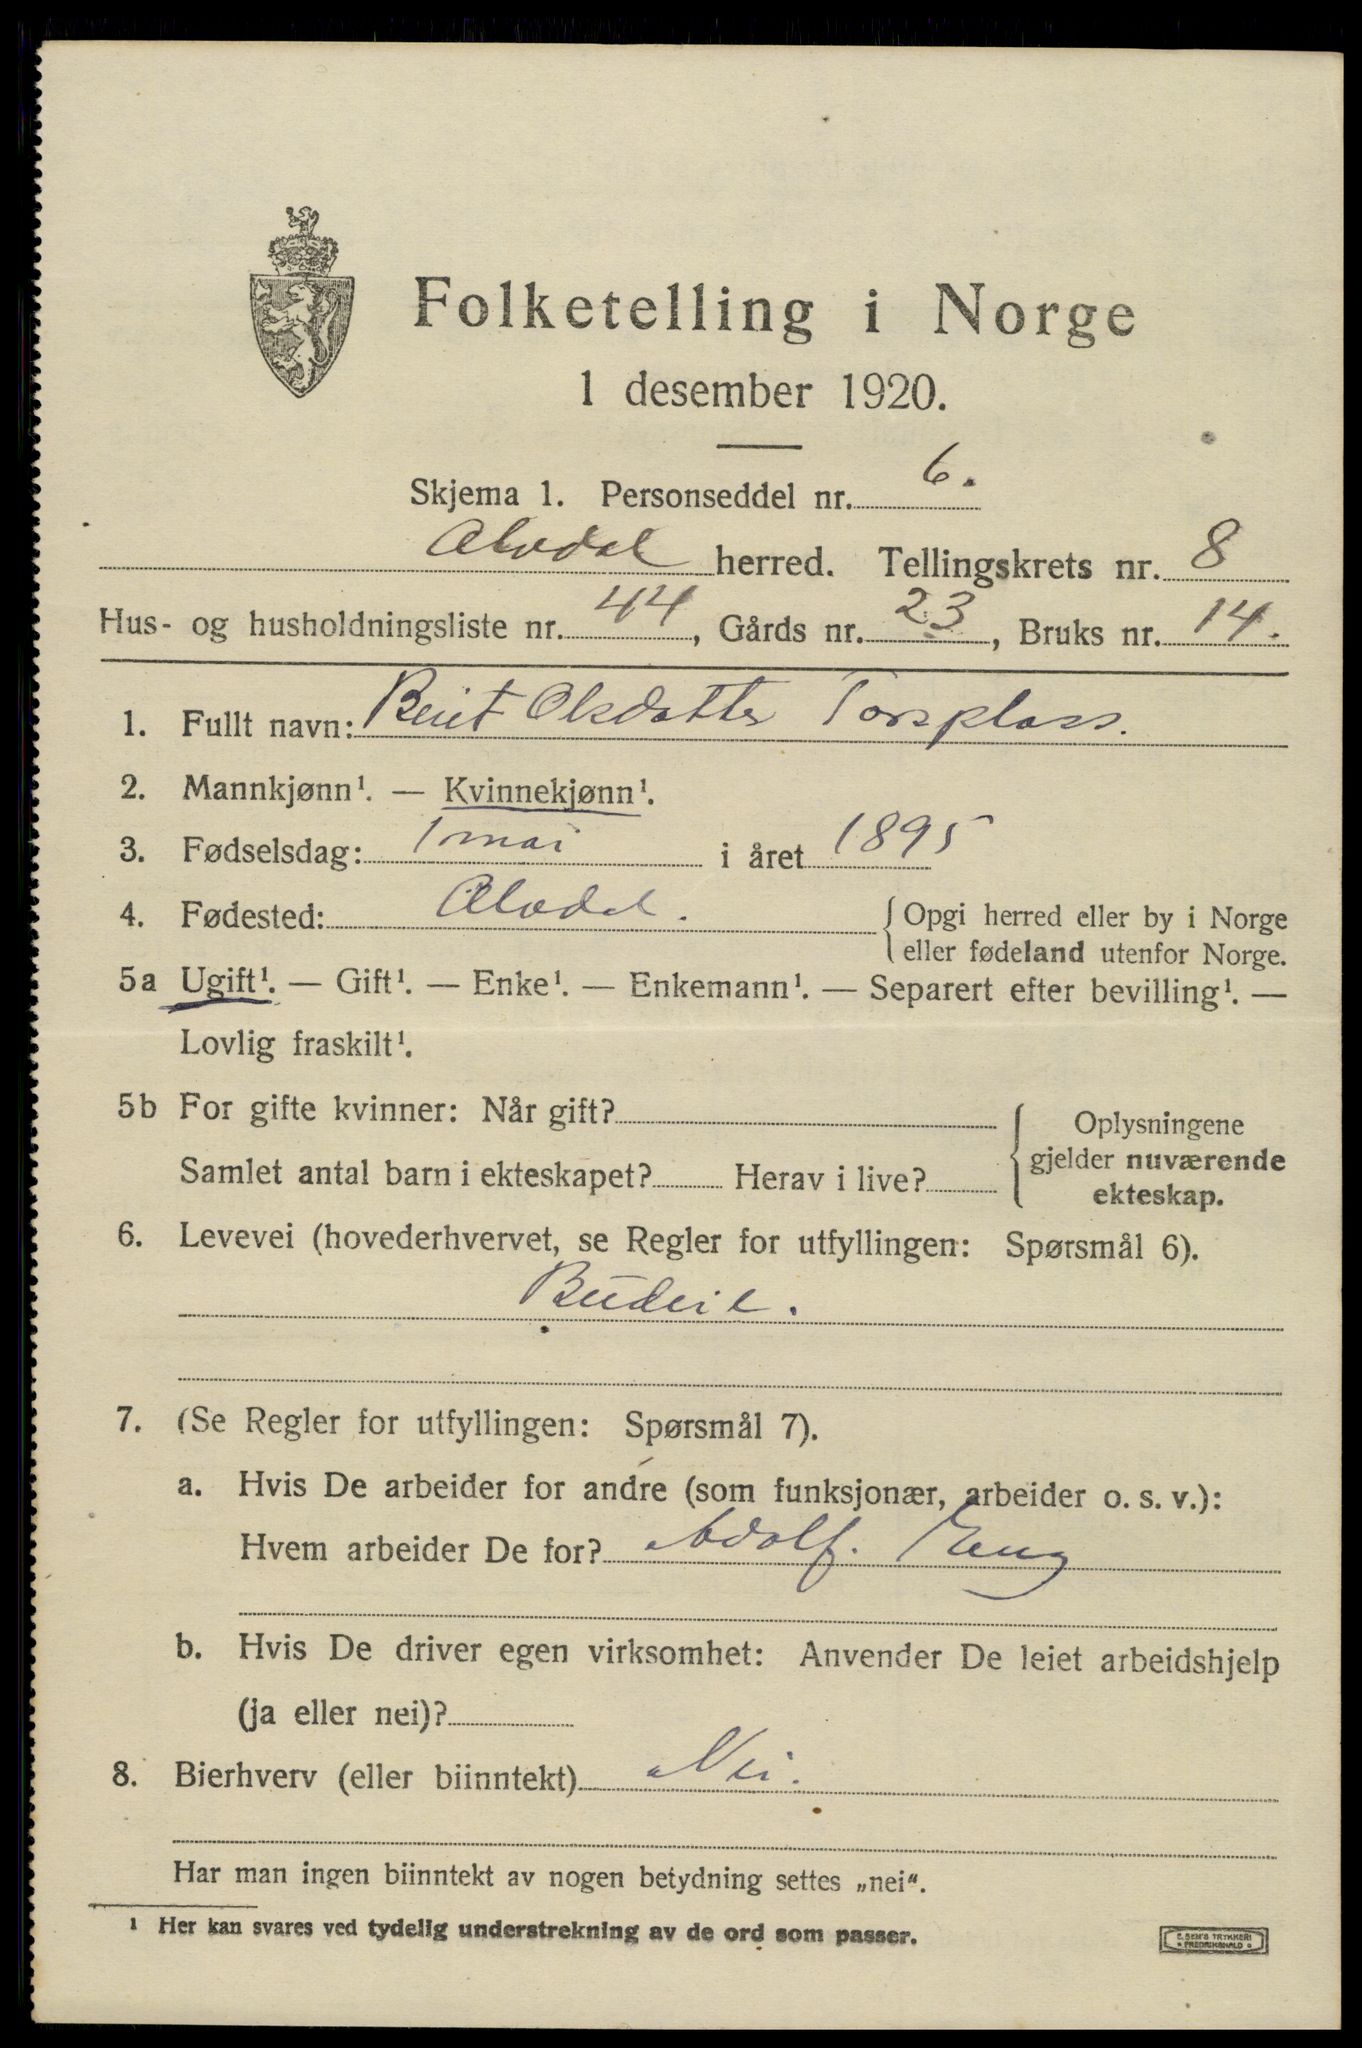 Folketelling i Norge
1 desember 1920.
Skjema 1. Personseddel nr. 6.
Alvdal herred. Tellingskrets nr. 8
Hus- og husholdningsliste nr. 44, Gårds nr. 23, Bruks nr. 14.
1. Fullt navn: Berit Olsdatter Torsplass.
2. Mannkjønn¹. — Kvinnekjønn¹.
3. Fødselsdag: 1 mai i året 1895
4. Fødested: Alvdal. { Opgi herred eller by i Norge
eller fødeland utenfor Norge.
5a Ugift¹. — Gift¹. — Enke¹. — Enkemann¹. — Separert efter bevilling¹. —
Lovlig fraskilt¹.
5b For gifte kvinner: Når gift? { Oplysningene
gjelder nuværende
Samlet antal barn i ekteskapet? Herav i live? ekteskap.
6. Levevei (hovederhvervet, se Regler for utfyllingen: Spørsmål 6).
Budeie.
7. (Se Regler for utfyllingen: Spørsmål 7).
a. Hvis De arbeider for andre (som funksjonær, arbeider o. s. v.):
Hvem arbeider De for? Adolf. Eung
b. Hvis De driver egen virksomhet: Anvender De leiet arbeidshjelp
(ja eller nei)?
8. Bierhverv (eller biinntekt) Nei.
Har man ingen biinntekt av nogen betydning settes „nei“.
¹ Her kan svares ved tydelig understrekning av de ord som passer.
E. SEM'S TRYKKERI
• FREDRIKSHALD •